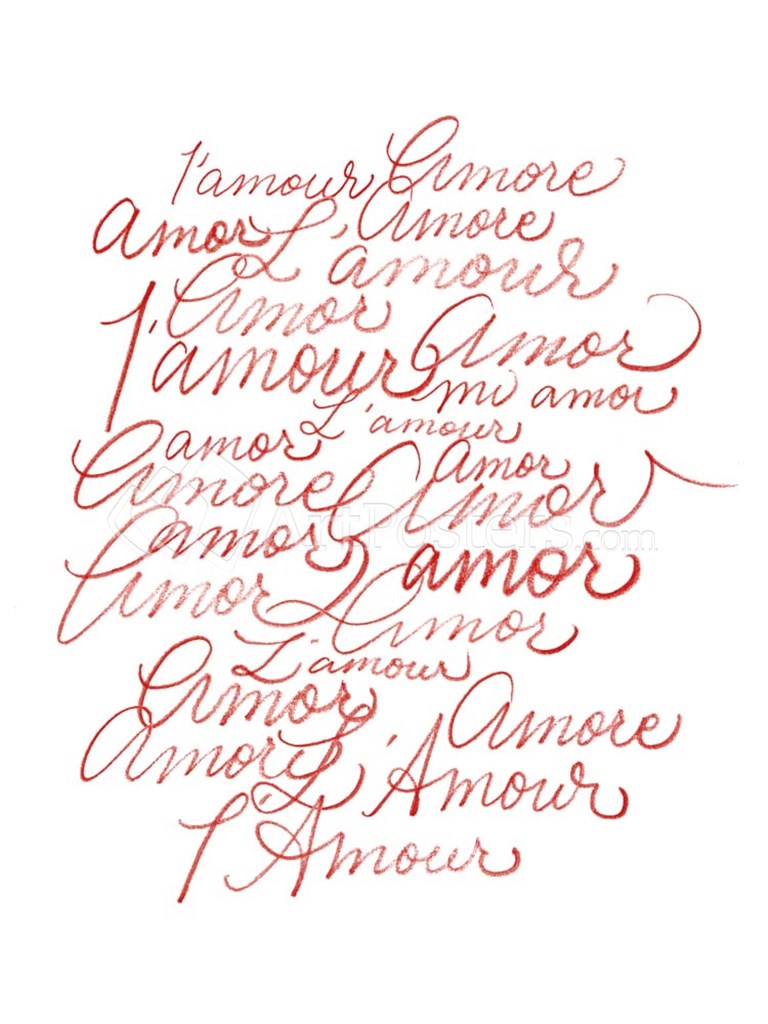 l'amour Amore
Amor Amore
L'amour
Amor
l'amour Amor
mi amor
L'amour
amor Amor
Amore Amor
ArtPosters.com
amor amor
Amor Amor
L'amour
Amor Amore
Amor L'Amour
l'Amour